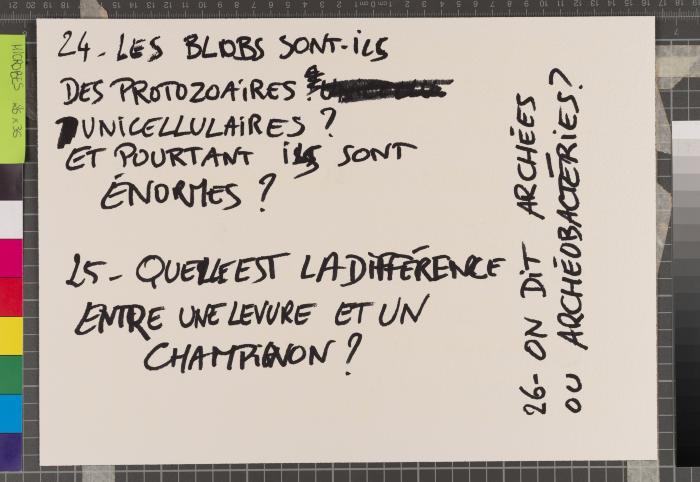 24- LES BLOBS SONT-ILS
DES PROTOZOAIRES ?
UNICELLULAIRES ?
ET POURTANT ILS SONT
ÉNORMES ?
25- QUELLE EST LA DIFFÉRENCE
ENTRE UNE LEVURE ET UN
CHAMPIGNON ?
26- ON DIT ARCHÉES
OU ARCHÉOBACTÉRIES ?
MICROBES